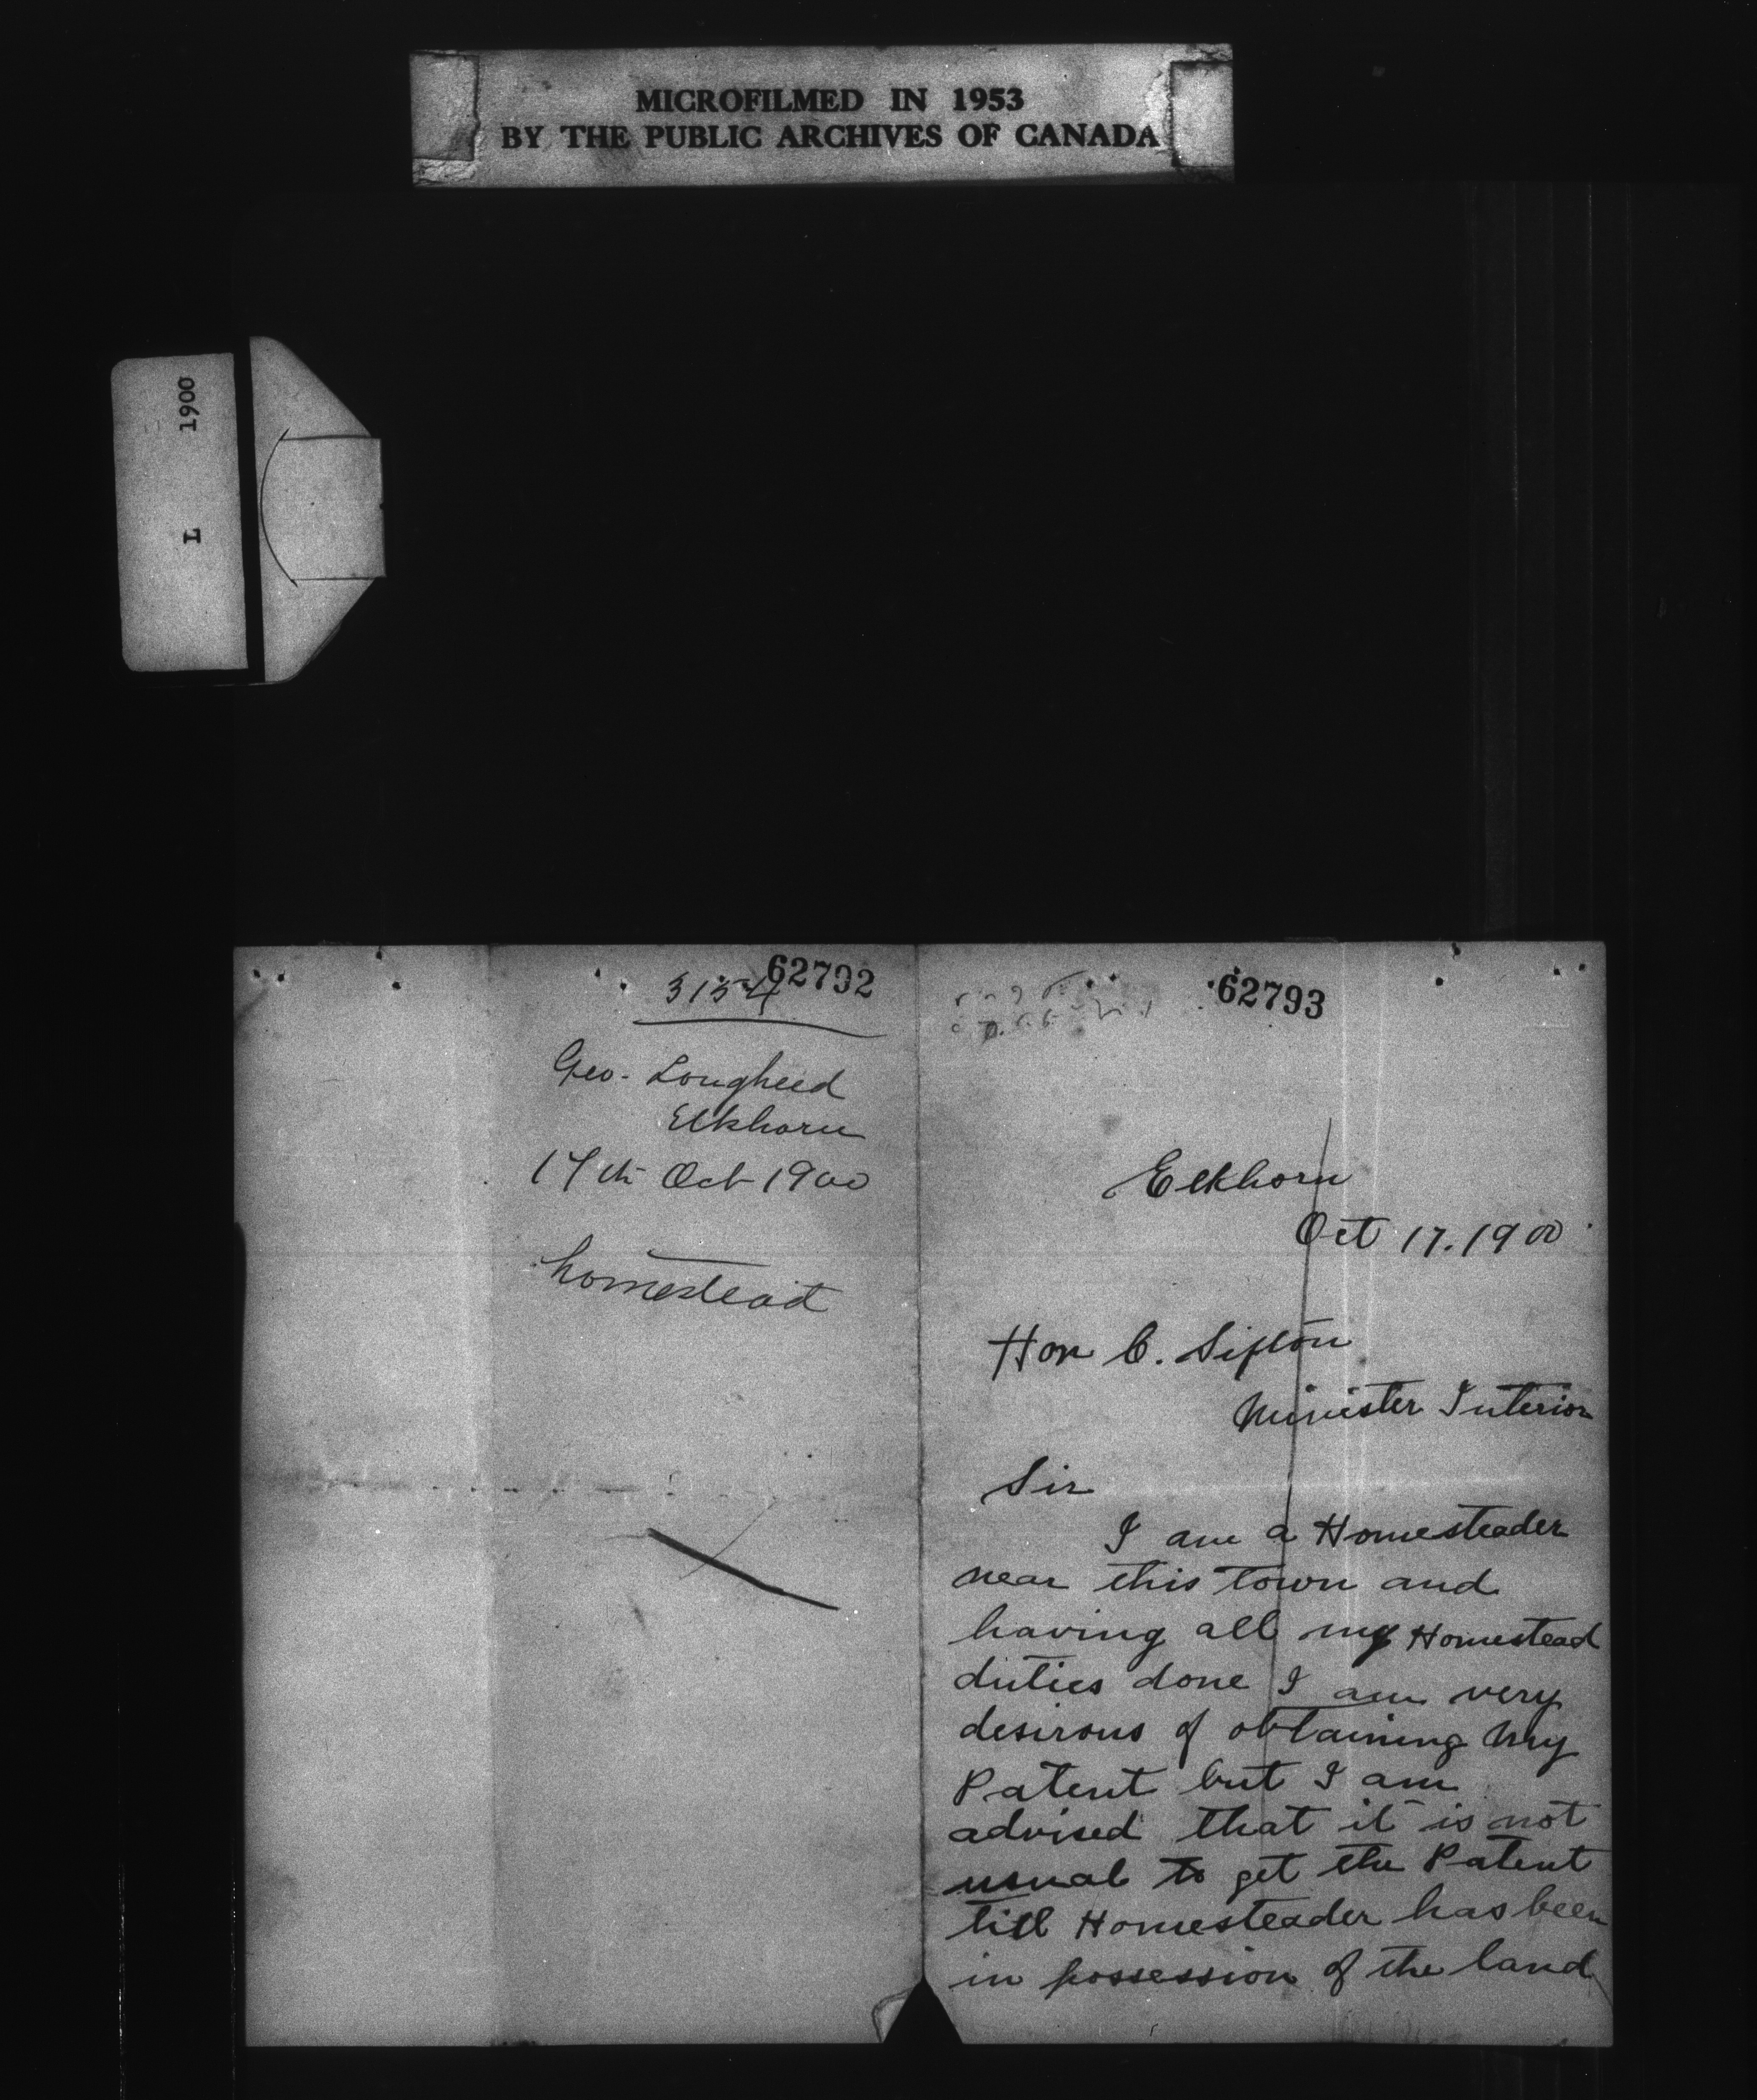 MICROFILMED IN 1953
BY THE PUBLIC ARCHIVES OF CANADA
L 1900
62792
3154
Geo. Lougheed
Elkhorn
17th Oct 1900
homestead
62793
Elkhorn
Oct 17. 1900
Hon C. Sifton
Minister Interior
Sir
I am a Homesteader
near this town and
having all my Homestead
duties done I am very
desirous of obtaining my
Patent but I am
advised that it is not
usual to get the Patent
till Homesteader has been
in possession of the land